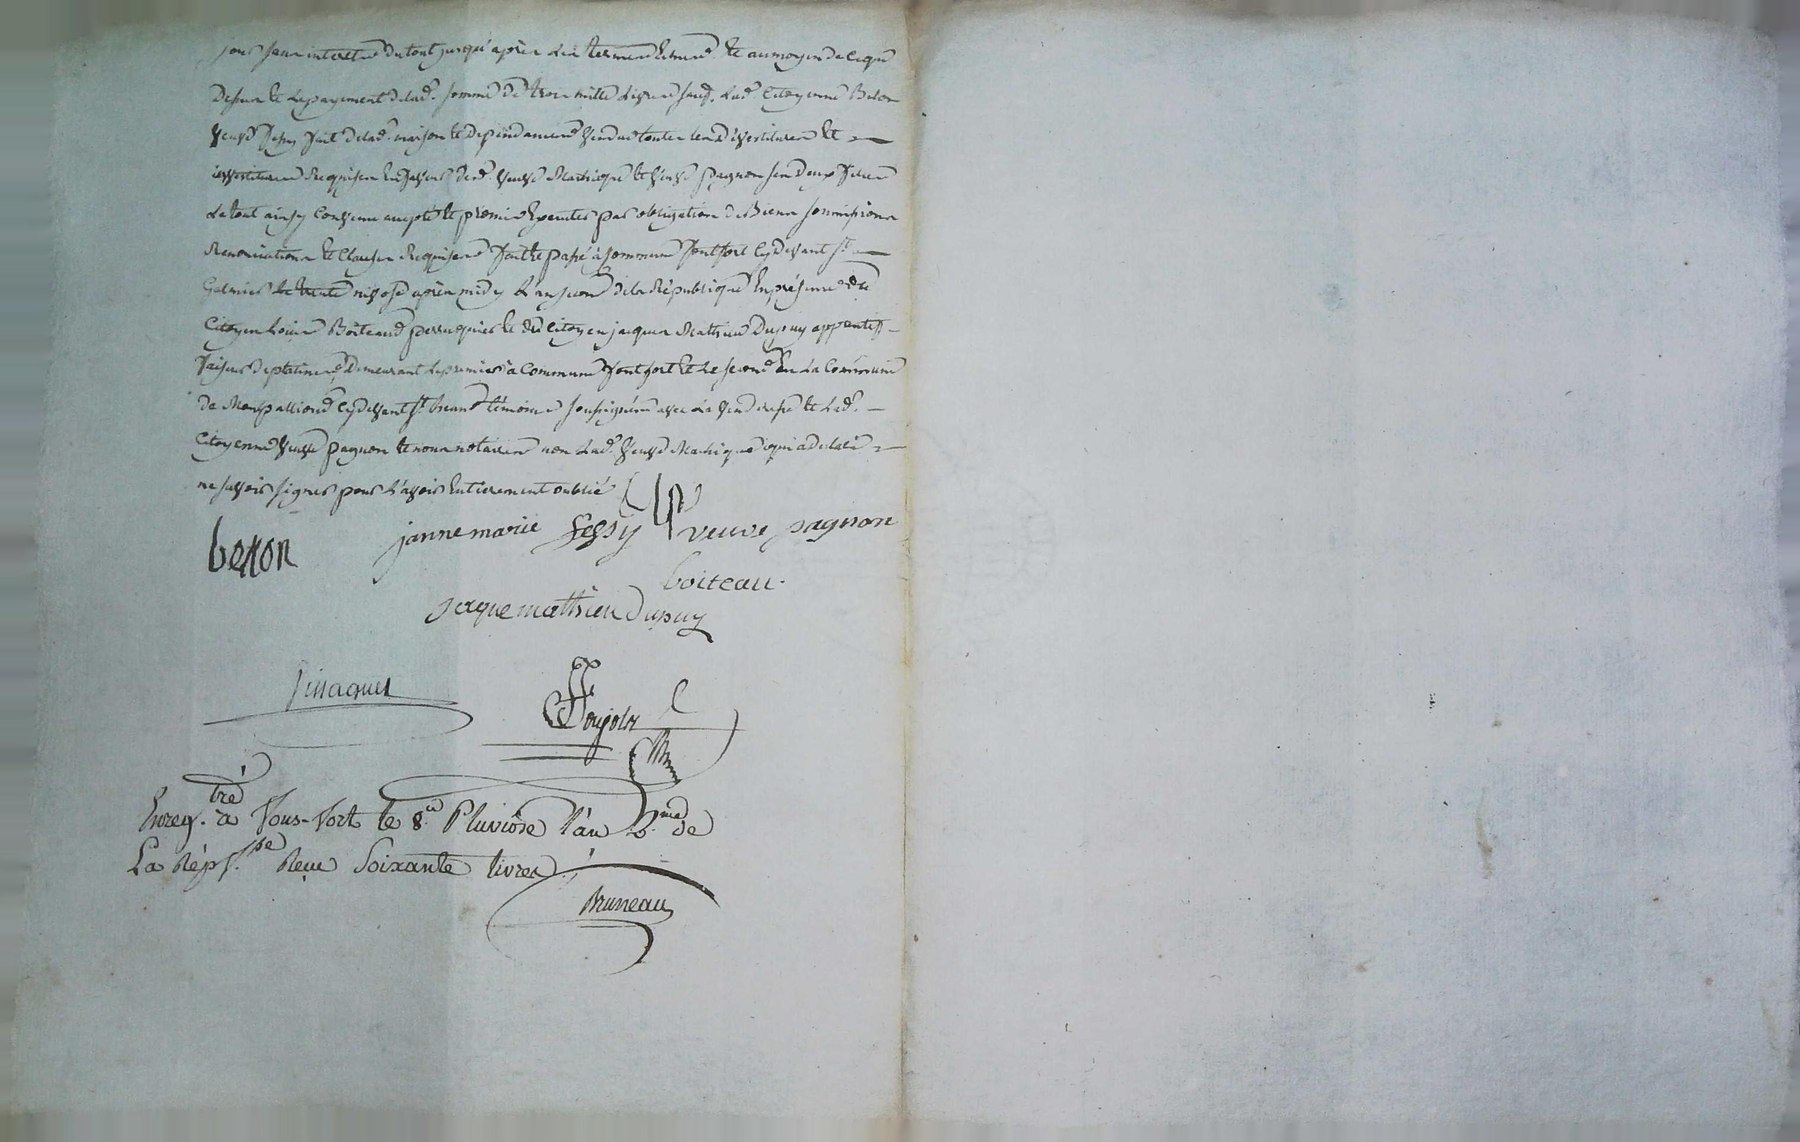 jours sans interetz du tout jusqu'aprèz les termes Echeus Et au moyen de ce que
Dessus et Le payement delad. somme de trois mille Livres sauf. Lad. Citoyenne Belon
Veuve fessy fait delad. maison et dependances vendues toutes les devestitures Et
investitures Requises En faveur desd. veuve Machique et veuve pagnon ses deux
Le tout ainsy Convenu accepté et promis Executer par obligation de Biens soumissions
Renonciations et Clauses Requises fait et passé à Commune fontfort Cy devant St
Galmier le nivose après midy L'an second de la République En présence du
Citoyen Louis Boiteau perruquier et du Citoyen jacques Mathieu Dupuy apprentif
faiseur de platines Demeurant Le premier à Commune fontfort Et Le second En La Commune
de Cy devant St temoins soussignés avec La venderesse et Lad.
Citoyenne veuve pagnon et nous notaires non Lad. Veuve Machique qui a declaré
ne savoir signer pour L'avoir Entierement oublié
belon janne marie fessy veuve pagnon
boiteau
jacque mathieu Dupuy
Enregtré à Fons-Fort le 8 Pluviôse l'an 2me de
La Rép. Reçu Soixante livres
Bruneau